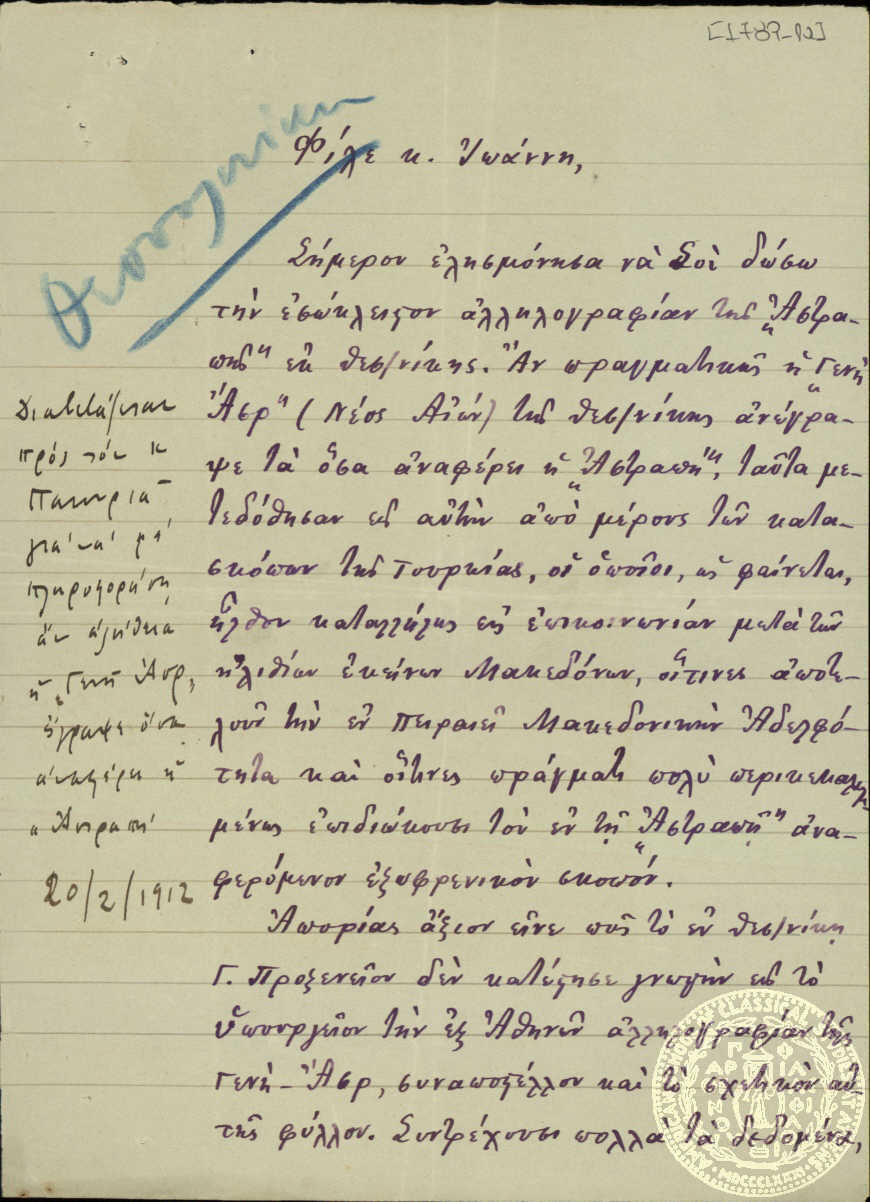 [1789-12]
Θεσσαλονίκην
Φίλε κ. Ἰωάννη,
Σήμερον ἐλησμόνησα νὰ Σοὶ δώσω
τὴν ἐσώκλειστον ἀλληλογραφίαν τῆς „Ἀστρα-
πῆς“ ἐκ Θεσ/νίκης. Ἂν πραγματικῶς ἡ „Γενῆ
Ἀσρ“ (Νέος Αἰών) τῆς Θεσ/νίκης ἀνέγρα-
ψε τὰ ὅσα ἀναφέρει ἡ „Ἀστραπή“, ταῦτα με-
τεδόθησαν εἰς αὐτὴν ἀπὸ μέρους τῶν κατα-
σκόπων τῆς Τουρκίας, οἱ ὁποῖοι, ὡς φαίνεται,
ἦλθον καταλλήλως εἰς ἐπικοινωνίαν μετὰ τῶν
ἠλιθίων ἐκείνων Μακεδόνων, οἵτινες ἀποτε-
λοῦν τὴν ἐν Πειραιεῖ Μακεδονικὴν Ἀδελφό-
τητα καὶ οἵτινες πράγματι πολὺ περικεκαλυμ-
μένως ἐπιδιώκουσι τὸν ἐν τῇ „Ἀστραπῇ“ ἀνα-
φερόμενον ἐξωφρενικὸν σκοπόν.
Ἀπορίας ἄξιον εἶνε πῶς τὸ ἐν Θεσ/νίκῃ
Γ. Προξενεῖον δὲν κατέστησε γνωστὴν εἰς τὸ
Ὑπουργεῖον τὴν ἐξ Ἀθηνῶν ἀλληλογραφίαν τῆς
Γενὴ-Ἀσρ, συναποστέλλον καὶ τὸ σχετικὸν αὐ-
τῆς φύλλον. Συντρέχουσι πολλὰ τὰ δεδομένα,
πρὸς τὸν κ
γιὰ νὰ μὲ
πληροφορήσῃ
ἂν ἀλήθεια
ἡ „Γενῆ Ἀσρ„
ἔγραψε ὅσα
ἀναφέρει ἡ
„Ἀστραπή
20/2/1912
MDCCCLXXXI